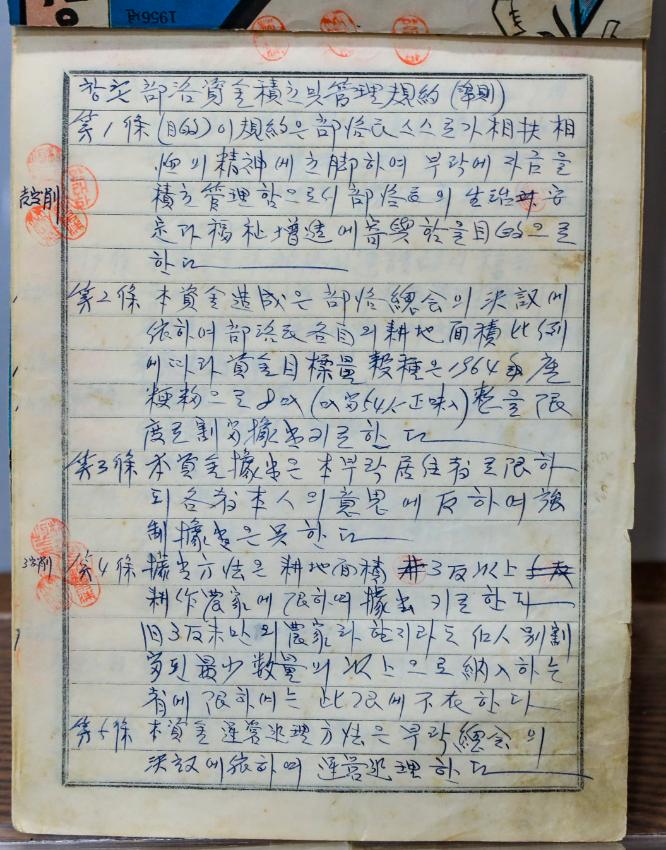 1956년
部落資金積立및管理規約(案則)
第1條 (目的)이規約은部洛民스스로가相扶相
의精神에立脚하여 부락에 자금을
積立管理함으로서 部落民의 生活 安
定과福祉增進에寄與함을目的으로
한다
第2條 本資金造成은 部洛總会의 決議에
依하여部洛民各自의耕地面積比例
에따라資金目標量 穀種은1964年産
으로 8叺 (叺當54k正味入)整을限
度로割當據出키로한다
第3條 本資金據出은本부락居住者로限하
되各者本人의意思에反하여强
制據出은못한다
第4條 據出方法은 耕地面積 3反以上
耕作農家에限하여據出키로한다
但3反未만의農家라한지라도 個人別割
當된最少數量의以上으로納入하는
者에限하여는 此限에不在한다
第5條 本資金運營処理方法은부락總会의
決議에依하여 運營処理한다